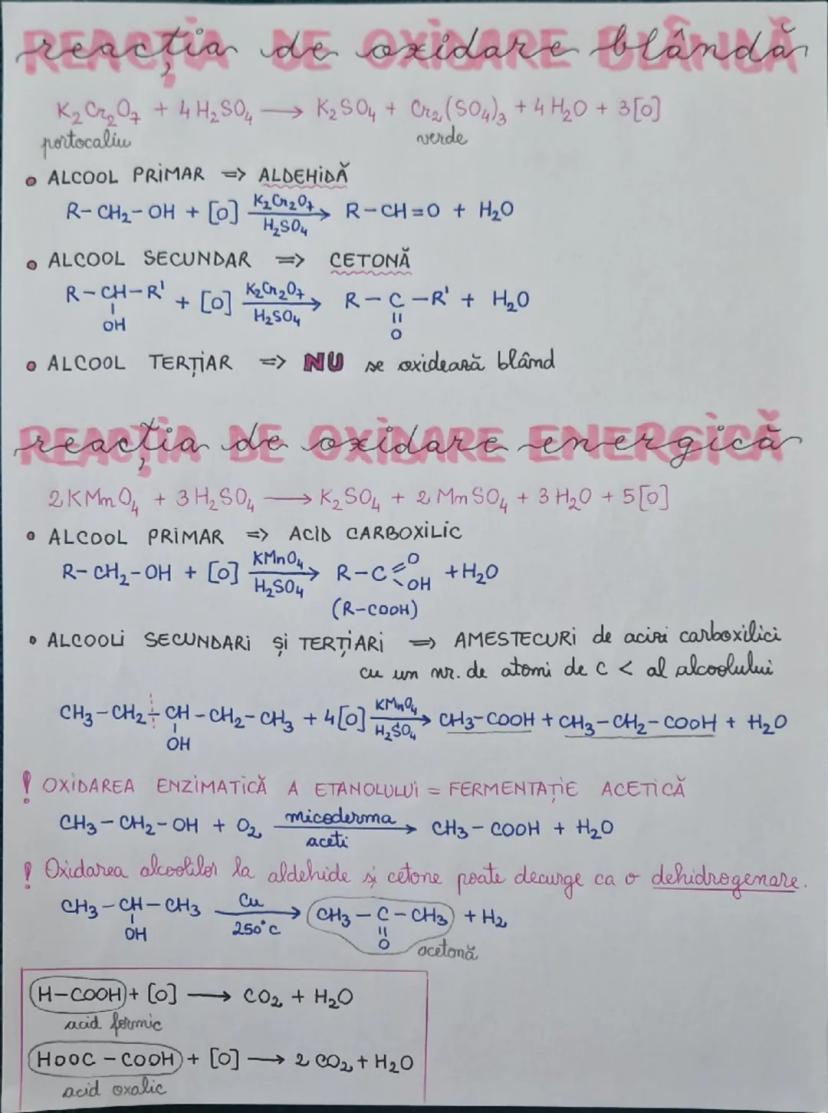 reacția de oxidare blândă
K₂Cr₂O₇ + 4H₂SO₄ → K₂SO₄ + Cr₂(SO₄)₃ + 4H₂O + 3[O]
portocaliu verde
• ALCOOL PRIMAR => ALDEHIDĂ
R-CH₂-OH + [O] K₂Cr₂O₇ / H₂SO₄ → R-CH=O + H₂O
• ALCOOL SECUNDAR => CETONĂ
R-CH-R' + [O] K₂Cr₂O₇ / H₂SO₄ → R-C-R' + H₂O
OH O
• ALCOOL TERȚIAR => NU se oxidează blând
reacția de oxidare energică
2KMnO₄ + 3H₂SO₄ → K₂SO₄ + 2MnSO₄ + 3H₂O + 5[O]
• ALCOOL PRIMAR => ACID CARBOXILIC
R-CH₂-OH + [O] KMnO₄ / H₂SO₄ → R-C=O -OH + H₂O
(R-COOH)
• ALCOOLI SECUNDARI ȘI TERȚIARI => AMESTECURI de acizi carboxilici
cu un nr. de atomi de C < al alcoolului
CH₃-CH₂-CH-CH₂-CH₃ + 4[O] KMnO₄ / H₂SO₄ → CH₃-COOH + CH₃-CH₂-COOH + H₂O
OH
! OXIDAREA ENZIMATICĂ A ETANOLULUI = FERMENTAȚIE ACETICĂ
CH₃-CH₂-OH + O₂ micoderma / aceti → CH₃-COOH + H₂O
! Oxidarea alcoolilor la aldehide și cetone poate decurge ca o dehidrogenare.
CH₃-CH-CH₃ Cu / 250°C → CH₃-C-CH₃ + H₂
OH O acetonă
H-COOH + [O] → CO₂ + H₂O
acid formic
HOOC-COOH + [O] → 2 CO₂ + H₂O
acid oxalic